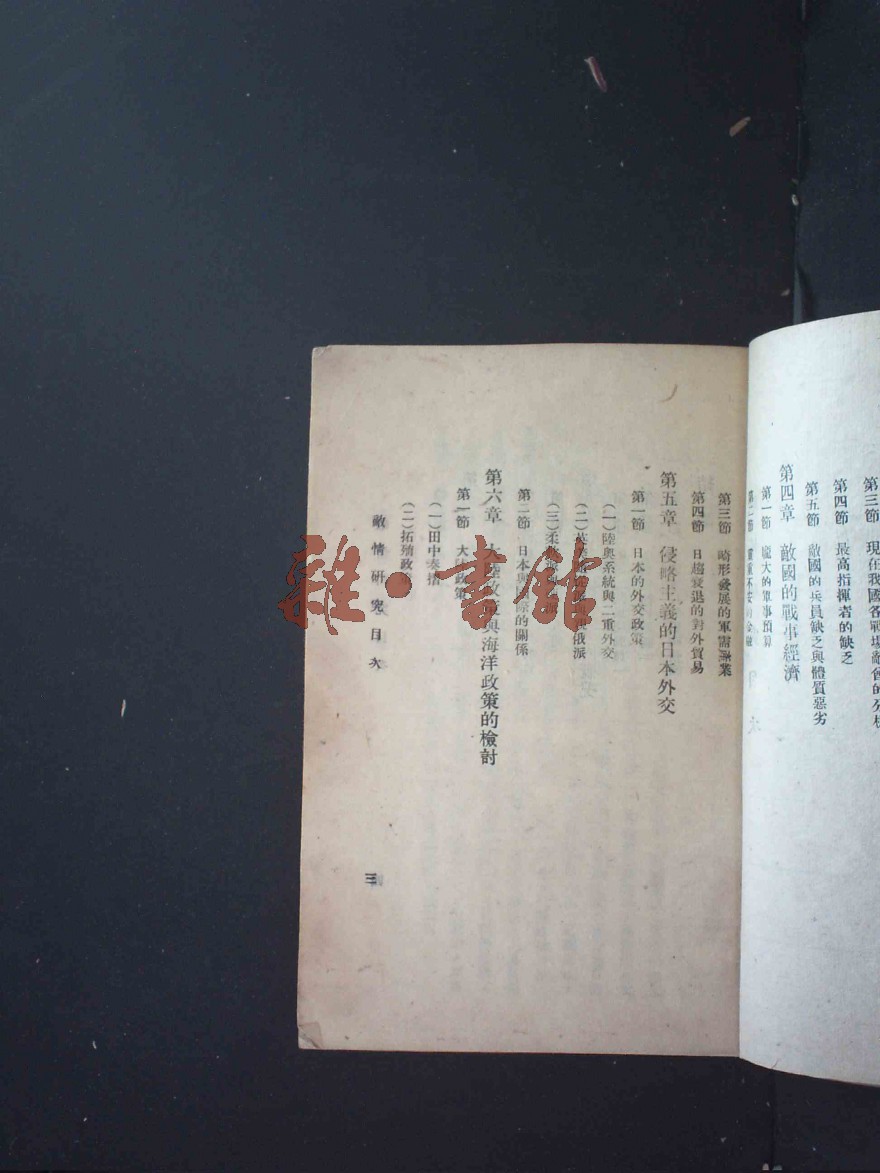 第三節 現在我國各戰場敵會的
第四節 最高指揮者的缺乏
第五節 敵國的兵員缺乏與體質惡劣
第四章 敵國的戰事經濟
第一節 龐大的軍事預算
第二節 不安的金融
第三節 畸形發展的軍需業
第四節 日趨衰退的對外貿易
第五章 侵略主義的日本外交
第一節 日本的外交政策
(一)陸奧系統與二重外交
(二)英美派俄派
(三)柔軟
第二節 日本與國際的關係
第六章 大陸政策與海洋政策的檢討
第一節 大陸政策
(一)田中奏摺
(二)拓殖政策
敵情研究目次
三
雜·書館